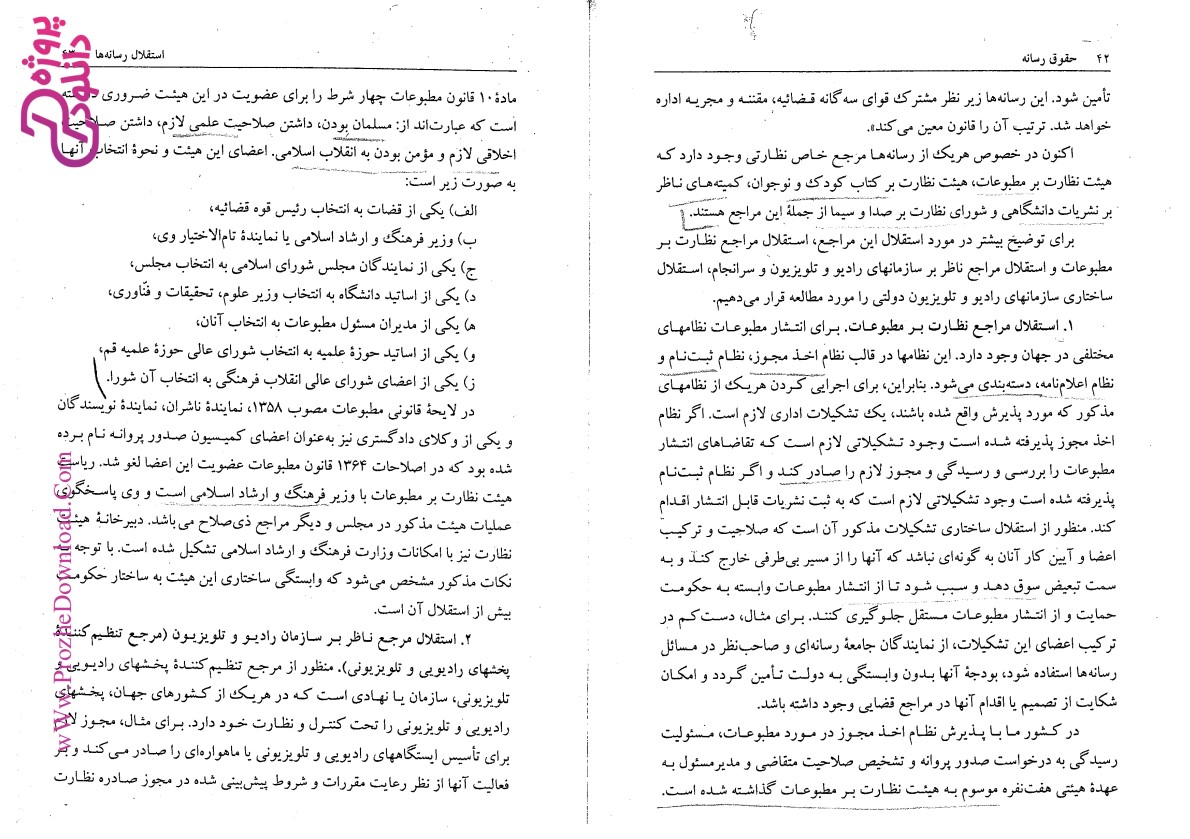 ۴۲ حقوق رسانه
تأمین شود. این رسانه‌ها زیر نظر مشترک قوای سه‌گانه قضائیه، مقننه و مجریه اداره
خواهد شد. ترتیب آن را قانون معین می‌کند».
اکنون در خصوص هریک از رسانه‌ها مرجع خاص نظارتی وجود دارد که
هیئت نظارت بر مطبوعات، هیئت نظارت بر کتاب کودک و نوجوان، کمیته‌های ناظر
بر نشریات دانشگاهی و شورای نظارت بر صدا و سیما از جملهٔ این مراجع هستند.
برای توضیح بیشتر در مورد استقلال این مراجع، استقلال مراجع نظارت بر
مطبوعات و استقلال مراجع ناظر بر سازمانهای رادیو و تلویزیون و سرانجام، استقلال
ساختاری سازمانهای رادیو و تلویزیون دولتی را مورد مطالعه قرار می‌دهیم.
۱. استقلال مراجع نظارت بر مطبوعات. برای انتشار مطبوعات نظامهای
مختلفی در جهان وجود دارد. این نظامها در قالب نظام اخذ مجوز، نظام ثبت‌نام و
نظام اعلام‌نامه، دسته‌بندی می‌شود. بنابراین، برای اجرایی کردن هریک از نظامهای
مذکور که مورد پذیرش واقع شده باشند، یک تشکیلات اداری لازم است. اگر نظام
اخذ مجوز پذیرفته شده است وجود تشکیلاتی لازم است که تقاضاهای انتشار
مطبوعات را بررسی و رسیدگی و مجوز لازم را صادر کند و اگر نظام ثبت‌نام
پذیرفته شده است وجود تشکیلاتی لازم است که به ثبت نشریات قابل انتشار اقدام
کند. منظور از استقلال ساختاری تشکیلات مذکور آن است که صلاحیت و ترکیب
اعضا و آیین کار آنان به گونه‌ای نباشد که آنها را از مسیر بی‌طرفی خارج کند و به
سمت تبعیض سوق دهد و سبب شود تا از انتشار مطبوعات وابسته به حکومت
حمایت و از انتشار مطبوعات مستقل جلوگیری کنند. برای مثال، دست‌کم در
ترکیب اعضای این تشکیلات، از نمایندگان جامعهٔ رسانه‌ای و صاحب‌نظر در مسائل
رسانه‌ها استفاده شود، بودجهٔ آنها بدون وابستگی به دولت تأمین گردد و امکان
شکایت از تصمیم یا اقدام آنها در مراجع قضایی وجود داشته باشد.
در کشور ما با پذیرش نظام اخذ مجوز در مورد مطبوعات، مسئولیت
رسیدگی به درخواست صدور پروانه و تشخیص صلاحیت متقاضی و مدیرمسئول به
عهدهٔ هیئتی هفت‌نفره موسوم به هیئت نظارت بر مطبوعات گذاشته شده است.
استقلال رسانه‌ها
مادهٔ ۱۰ قانون مطبوعات چهار شرط را برای عضویت در این هیئت ضروری دانسته
است که عبارت‌اند از: مسلمان بودن، داشتن صلاحیت علمی لازم، داشتن صلاحیت
اخلاقی لازم و مؤمن بودن به انقلاب اسلامی. اعضای این هیئت و نحوهٔ انتخاب آنها
به صورت زیر است:
الف) یکی از قضات به انتخاب رئیس قوه قضائیه،
ب) وزیر فرهنگ و ارشاد اسلامی یا نمایندهٔ تام‌الاختیار وی،
ج) یکی از نمایندگان مجلس شورای اسلامی به انتخاب مجلس،
د) یکی از اساتید دانشگاه به انتخاب وزیر علوم، تحقیقات و فنّاوری،
ه) یکی از مدیران مسئول مطبوعات به انتخاب آنان،
و) یکی از اساتید حوزهٔ علمیه به انتخاب شورای عالی حوزهٔ علمیه قم،
ز) یکی از اعضای شورای عالی انقلاب فرهنگی به انتخاب آن شورا.
در لایحهٔ قانونی مطبوعات مصوب ۱۳۵۸، نمایندهٔ ناشران، نمایندهٔ نویسندگان
و یکی از وکلای دادگستری نیز به‌عنوان اعضای کمیسیون صدور پروانه نام برده
شده بود که در اصلاحات ۱۳۶۴ قانون مطبوعات عضویت این اعضا لغو شد. ریاست
هیئت نظارت بر مطبوعات با وزیر فرهنگ و ارشاد اسلامی است و وی پاسخگوی
عملیات هیئت مذکور در مجلس و دیگر مراجع ذی‌صلاح می‌باشد. دبیرخانهٔ هیئت
نظارت نیز با امکانات وزارت فرهنگ و ارشاد اسلامی تشکیل شده است. با توجه به
نکات مذکور مشخص می‌شود که وابستگی ساختاری این هیئت به ساختار حکومت
بیش از استقلال آن است.
۲. استقلال مرجع ناظر بر سازمان رادیو و تلویزیون (مرجع تنظیم‌کنندهٔ
پخشهای رادیویی و تلویزیونی). منظور از مرجع تنظیم‌کنندهٔ پخشهای رادیویی و
تلویزیونی، سازمان یا نهادی است که در هریک از کشورهای جهان، پخشهای
رادیویی و تلویزیونی را تحت کنترل و نظارت خود دارد. برای مثال، مجوز لازم
برای تأسیس ایستگاههای رادیویی و تلویزیونی یا ماهواره‌ای را صادر می‌کند و بر
فعالیت آنها از نظر رعایت مقررات و شروط پیش‌بینی شده در مجوز صادره نظارت
پروژه
دانلود
wWw.ProzheDownload.Com